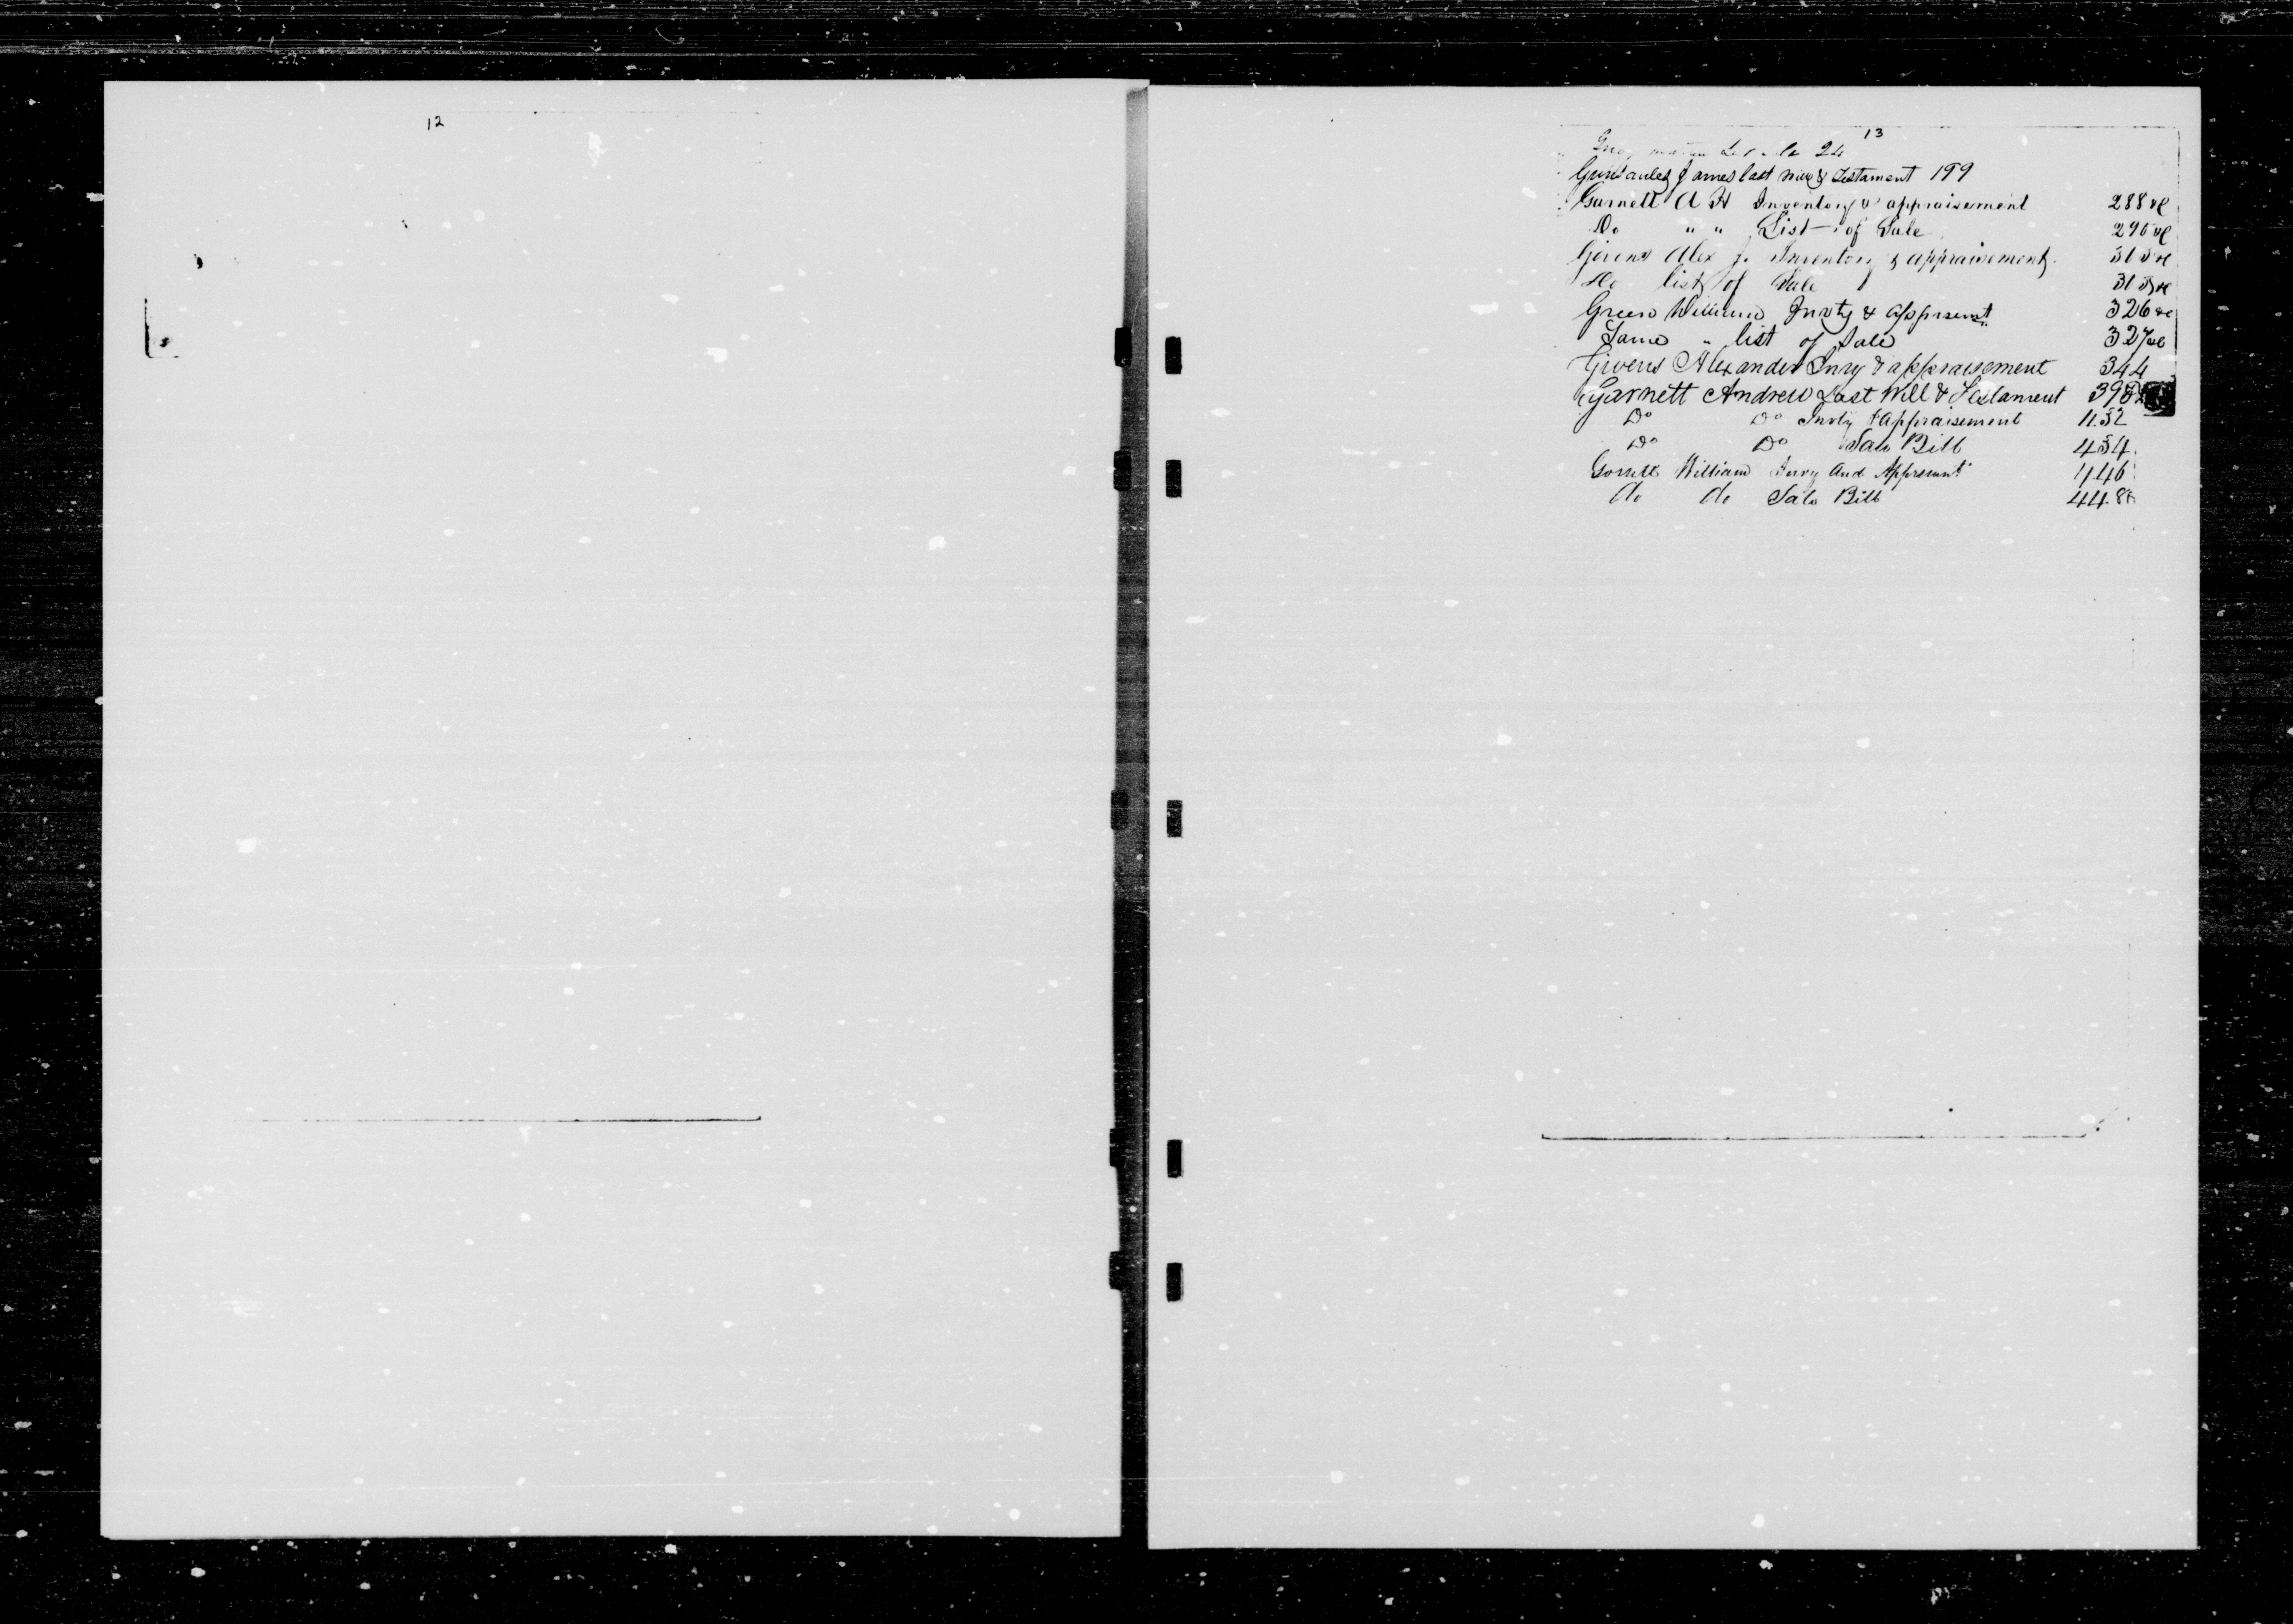 12
13
24
James last will & Testament 199
Garnett A H Inventory & appraisement 288
Do " " List of Sale 296
Givens Alex J. Inventory & appraisement 313
Do list of Sale 313
Green William Invty & Apprsemt 326
Same " list of Sale 327
Givens Alexander Invy & appraisement 344
Garnett Andrew Last Will & Testament
Do Do Invty & Appraisement 432
Do Do Sale Bill 434
William Invy And Apprsemnt 446
do do Sale Bill 448